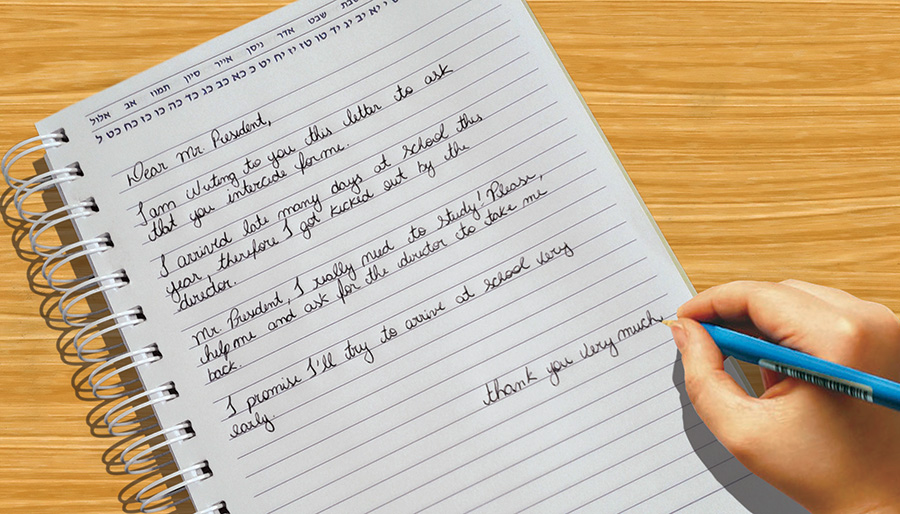 שבט אדר ניסן אייר סיון תמוז אב אלול
י יא יב יג יד טו טז יז יח יט כ כא כב כג כד כה כו כז כח כט ל
Dear Mr. President,
I am writing to you this letter to ask
that you intercide for me.
I arrived late many days at school this
year, therefore I got kicked out by the
director.
Mr. President, I really need to study! Please,
help me and ask for the director to take me
back.
I promise I'll try to arrive at school very
early.
thank you very much